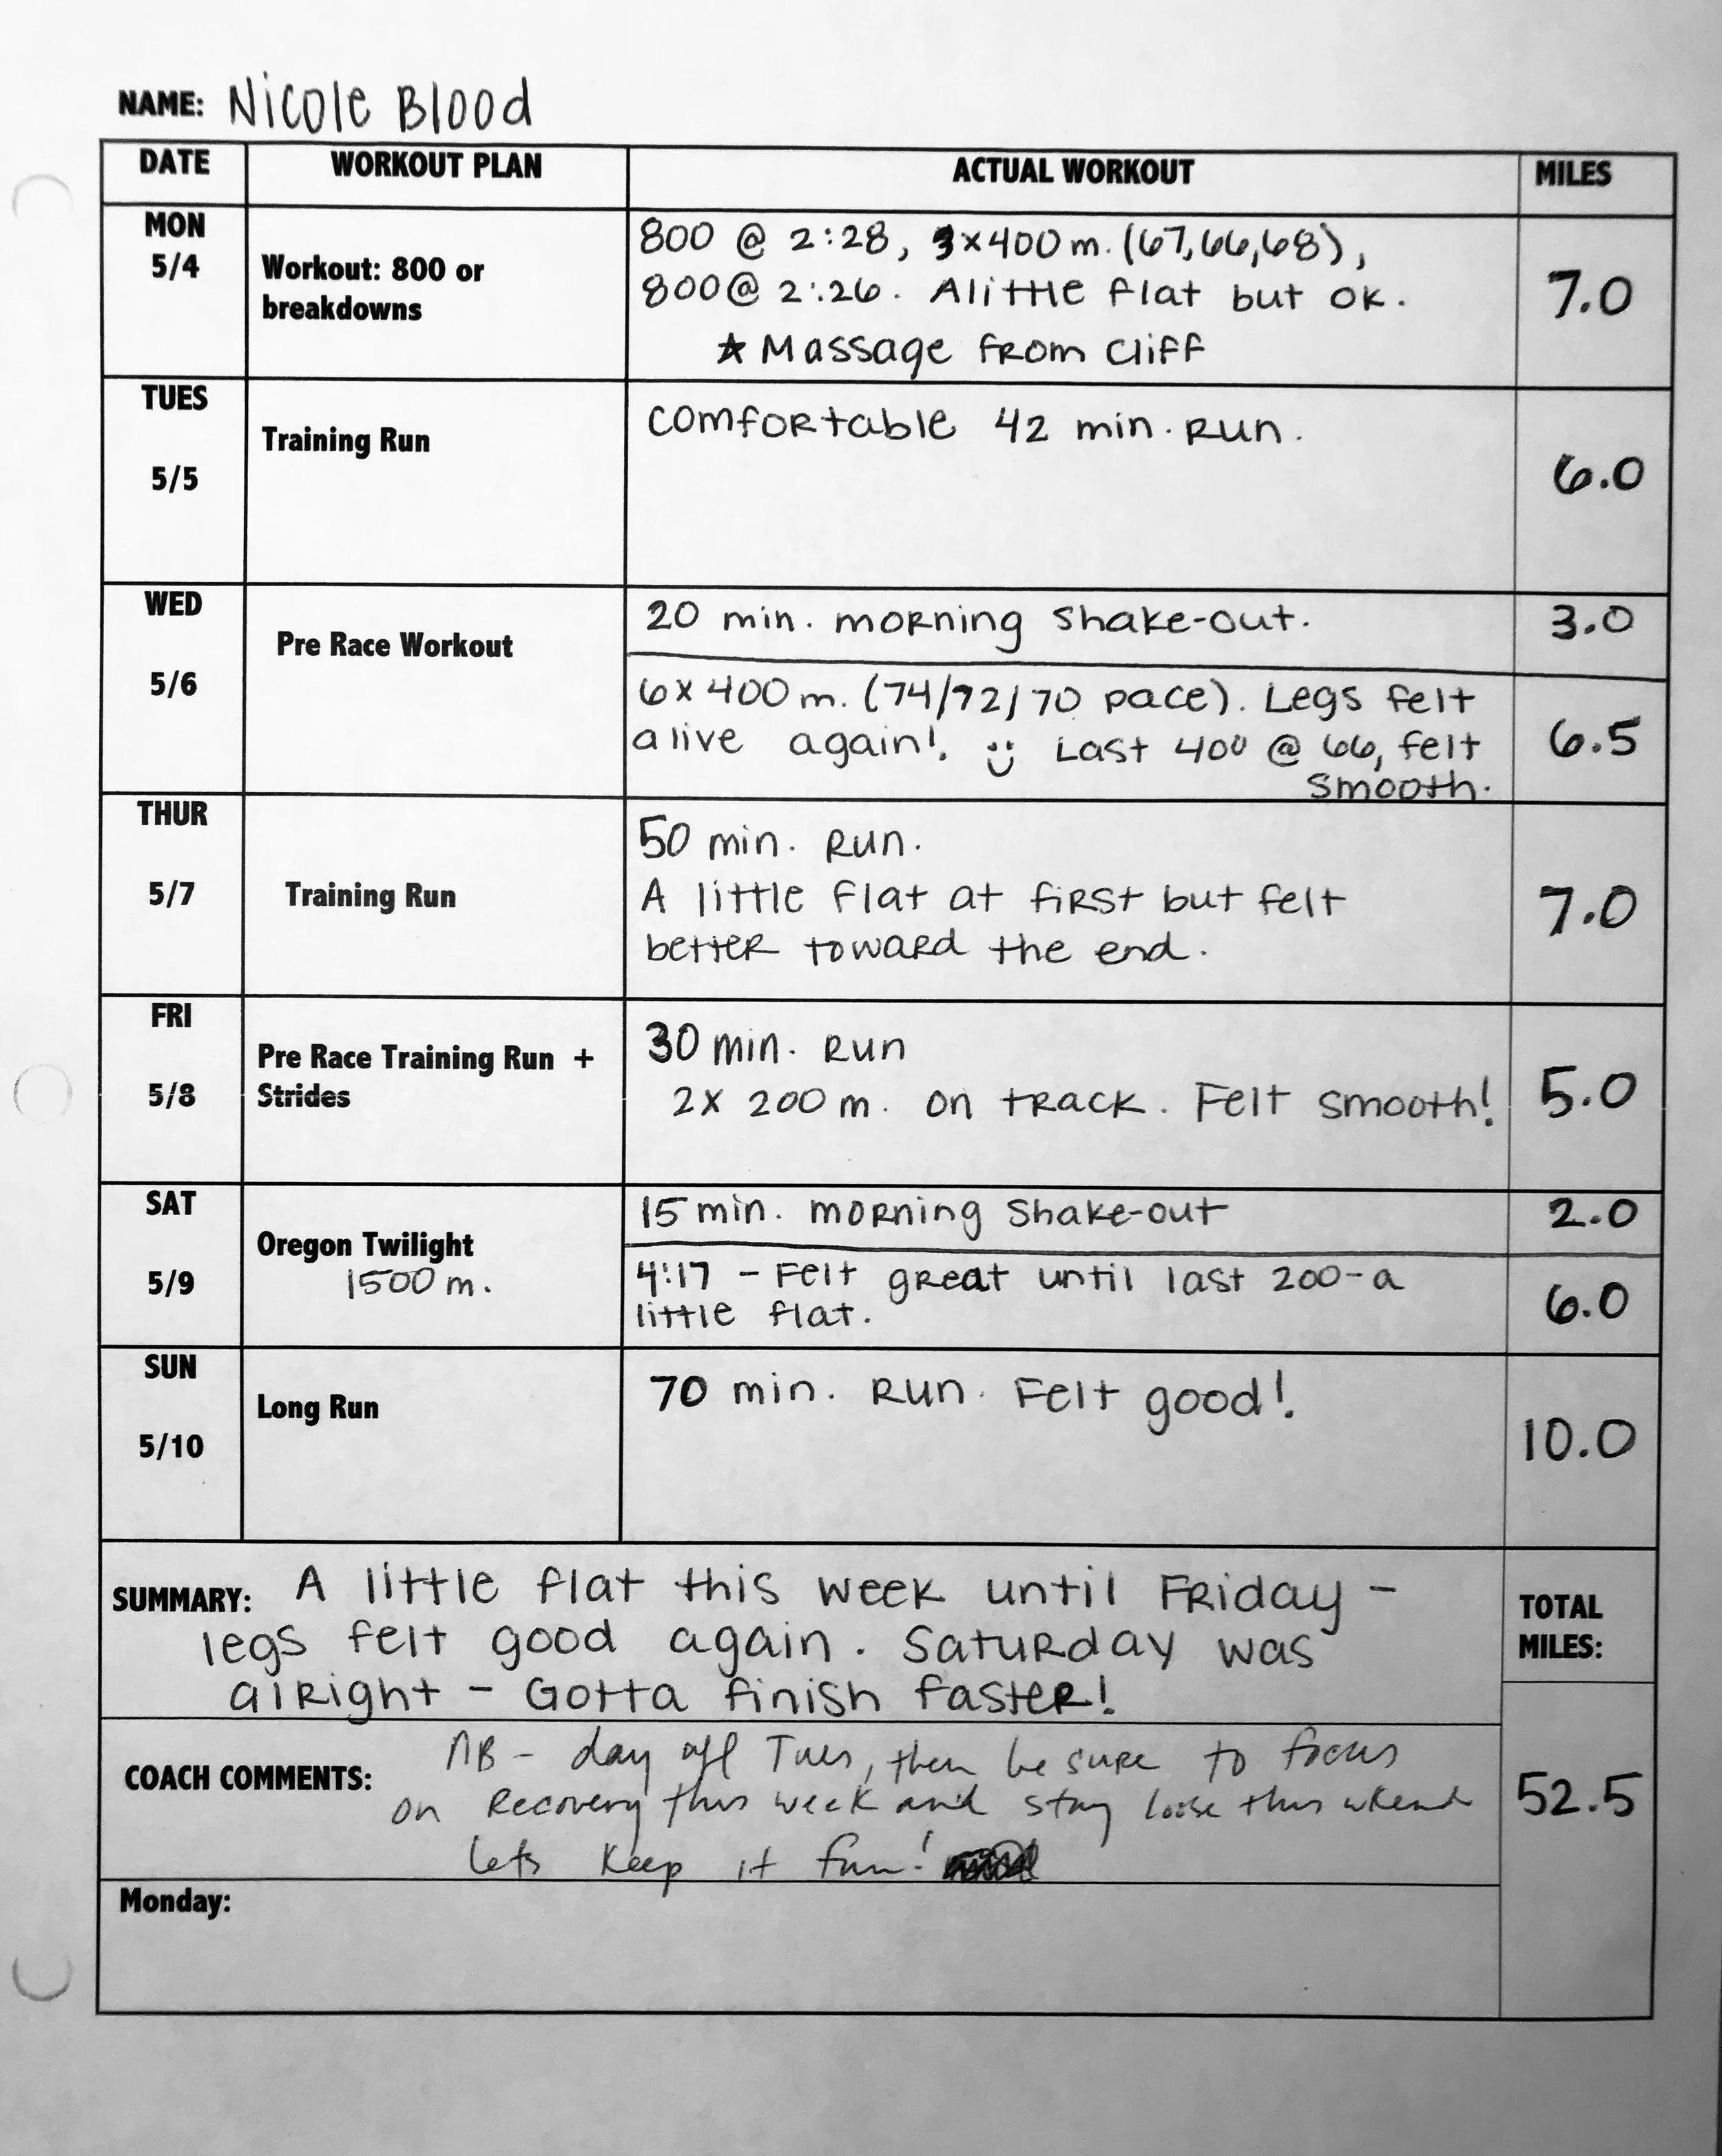 NAME: Nicole Blood
DATE WORKOUT PLAN ACTUAL WORKOUT MILES
MON
5/4
Workout: 800 or
breakdowns
800 @ 2:28, 3x400m. (67,66,68),
800@ 2:26. A little flat but ok.
☆ Massage from Cliff
7.0
TUES
5/5
Training Run
Comfortable 42 min. run.
6.0
WED
5/6
Pre Race Workout
20 min. morning shake-out.
3.0
6x400m. (74/72/70 pace). Legs felt
alive again! :) Last 400 @ 66, felt
smooth.
6.5
THUR
5/7
Training Run
50 min. run.
A little flat at first but felt
better toward the end.
7.0
FRI
5/8
Pre Race Training Run +
Strides
30 min. run
2x 200m. on track. Felt smooth!
5.0
SAT
5/9
Oregon Twilight
1500 m.
15 min. morning shake-out
2.0
4:17 - Felt great until last 200-a
little flat.
6.0
SUN
5/10
Long Run
70 min. run. Felt good!
10.0
SUMMARY: A little flat this week until Friday -
legs felt good again. Saturday was
alright - Gotta finish faster!
TOTAL
MILES:
52.5
COACH COMMENTS: NB - day off Tues, then be sure to focus
on Recovery this week and stay loose this wkend
lets keep it fun!
Monday: